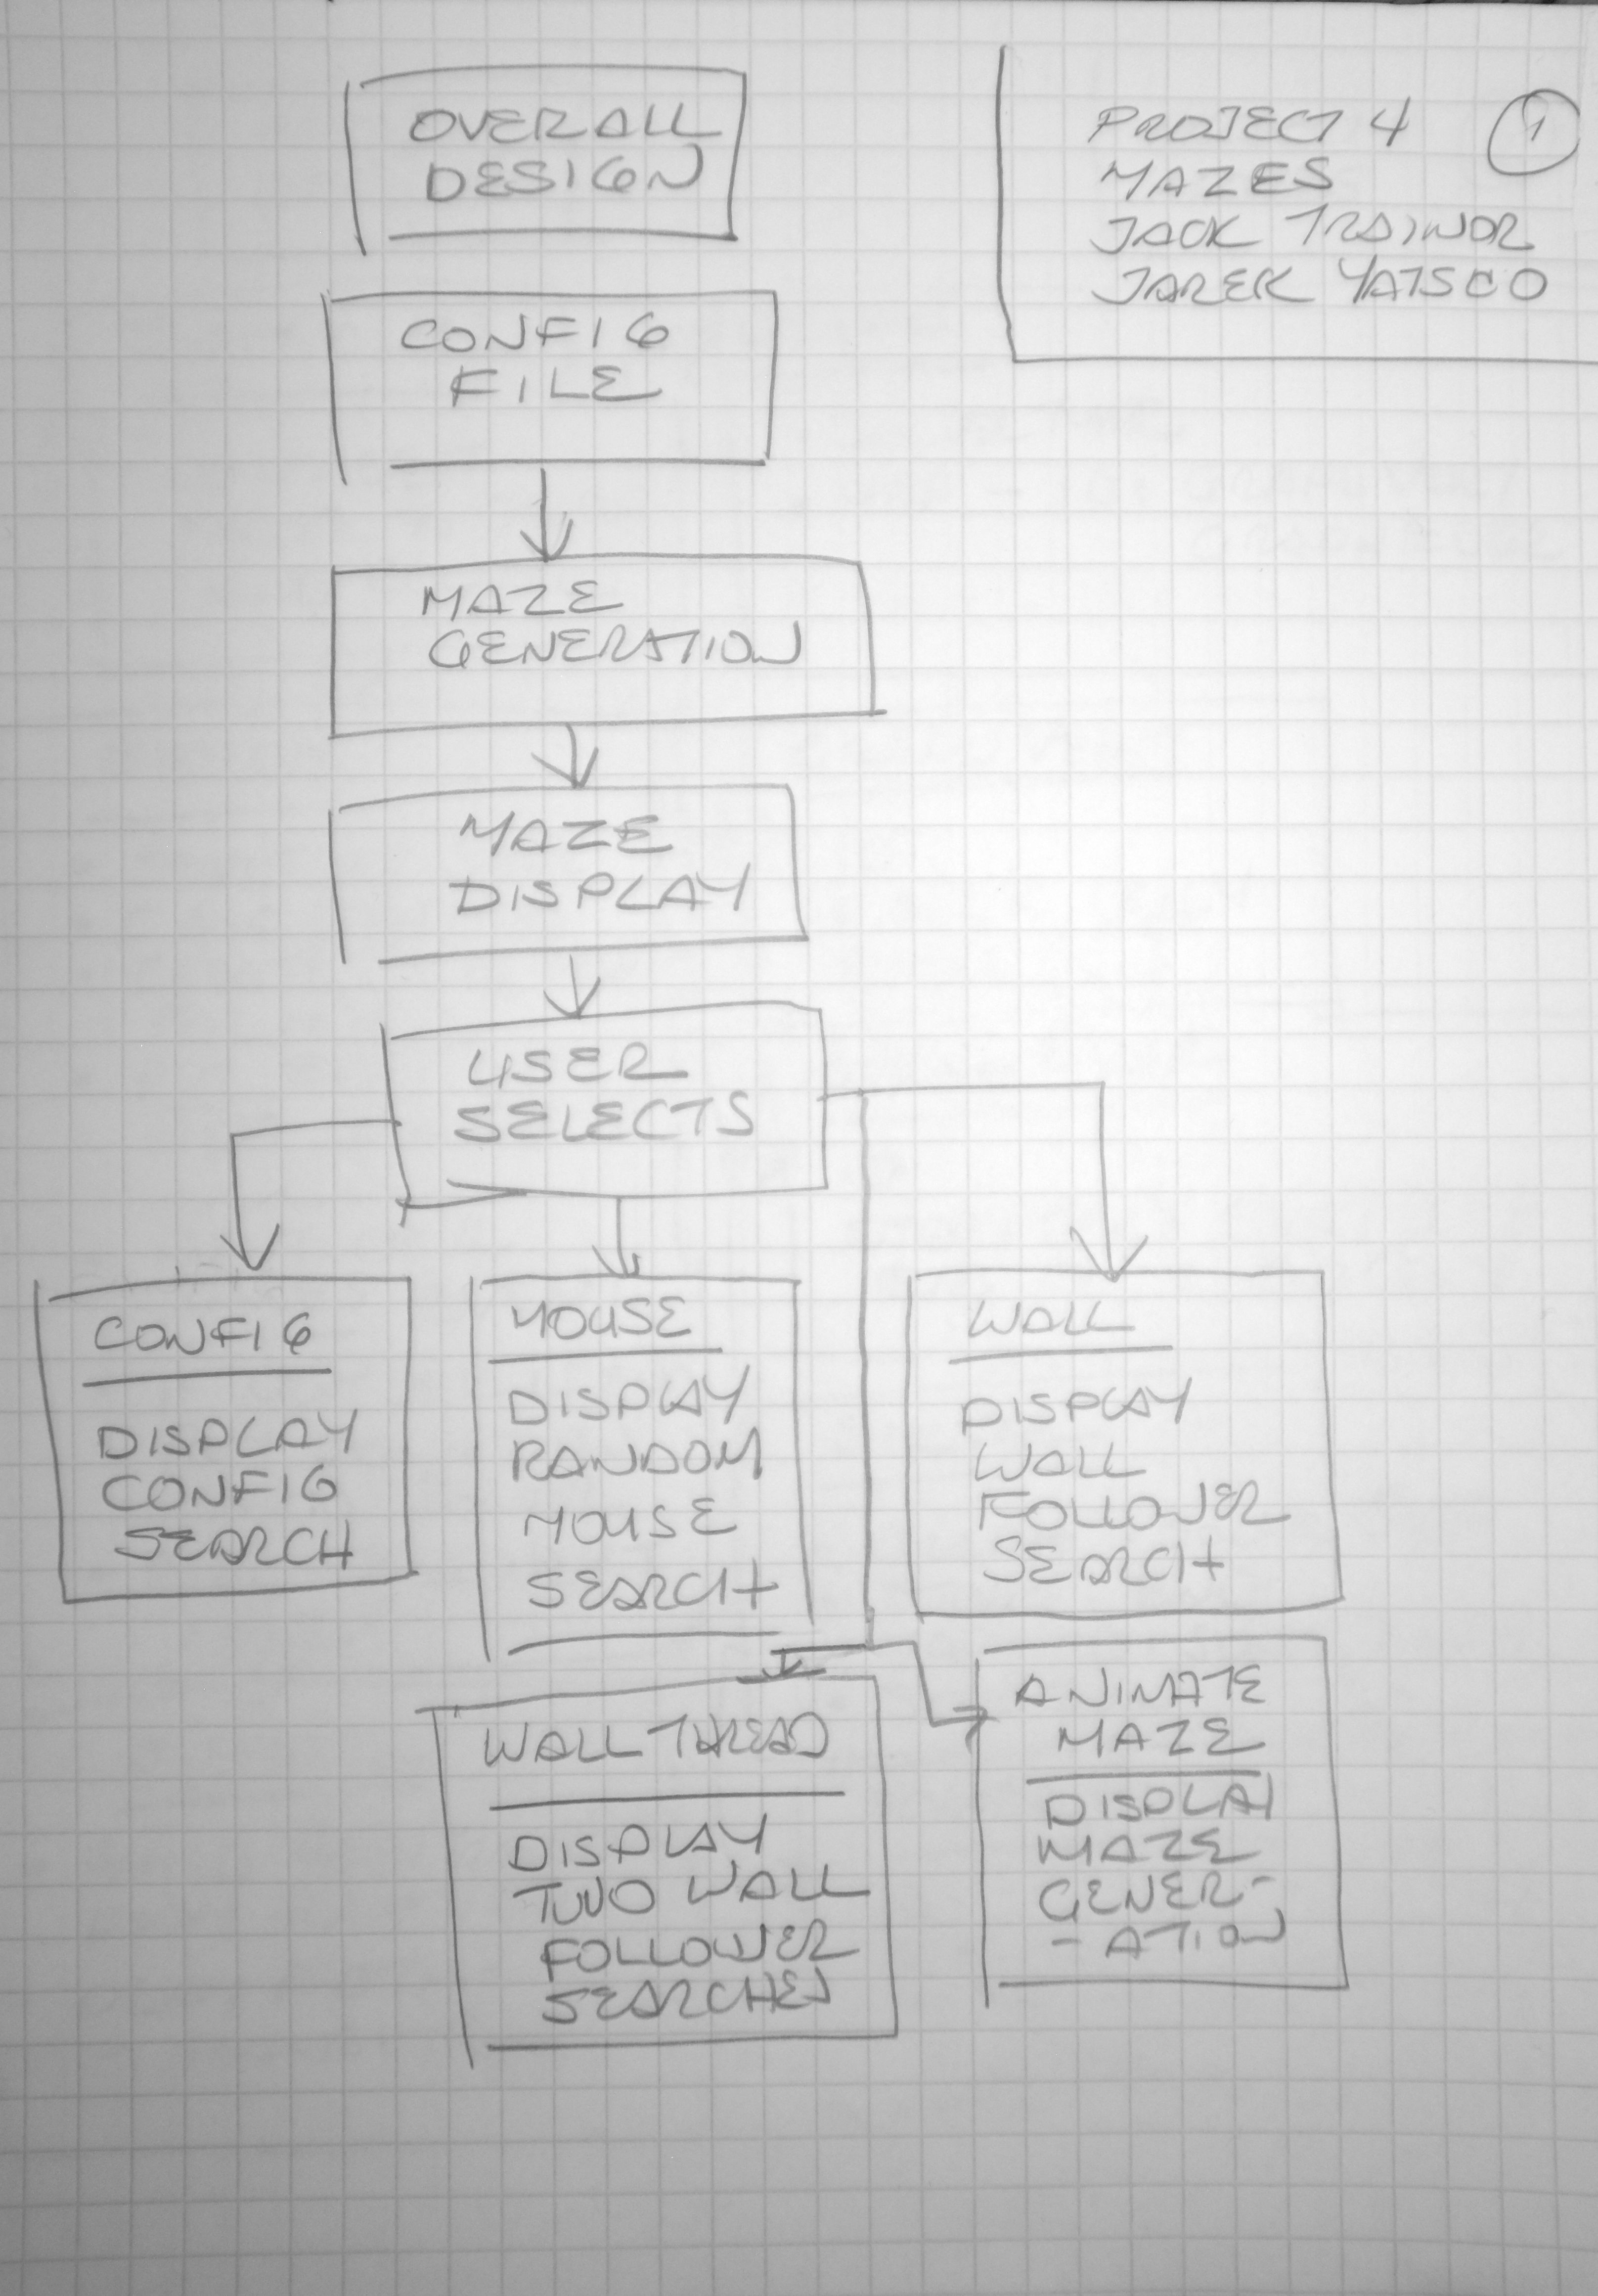 OVERALL
DESIGN
PROJECT 4
1
MAZES
JACK TRAINOR
JAREK YATSCO
CONFIG
FILE
MAZE
GENERATION
MAZE
DISPLAY
USER
SELECTS
CONFIG
DISPLAY
CONFIG
SEARCH
MOUSE
DISPLAY
RANDOM
MOUSE
SEARCH
WALL
DISPLAY
WALL
FOLLOWER
SEARCH
WALL THREAD
DISPLAY
TWO WALL
FOLLOWER
SEARCHES
ANIMATE
MAZE
DISPLAY
MAZE
GENER-
- ATION